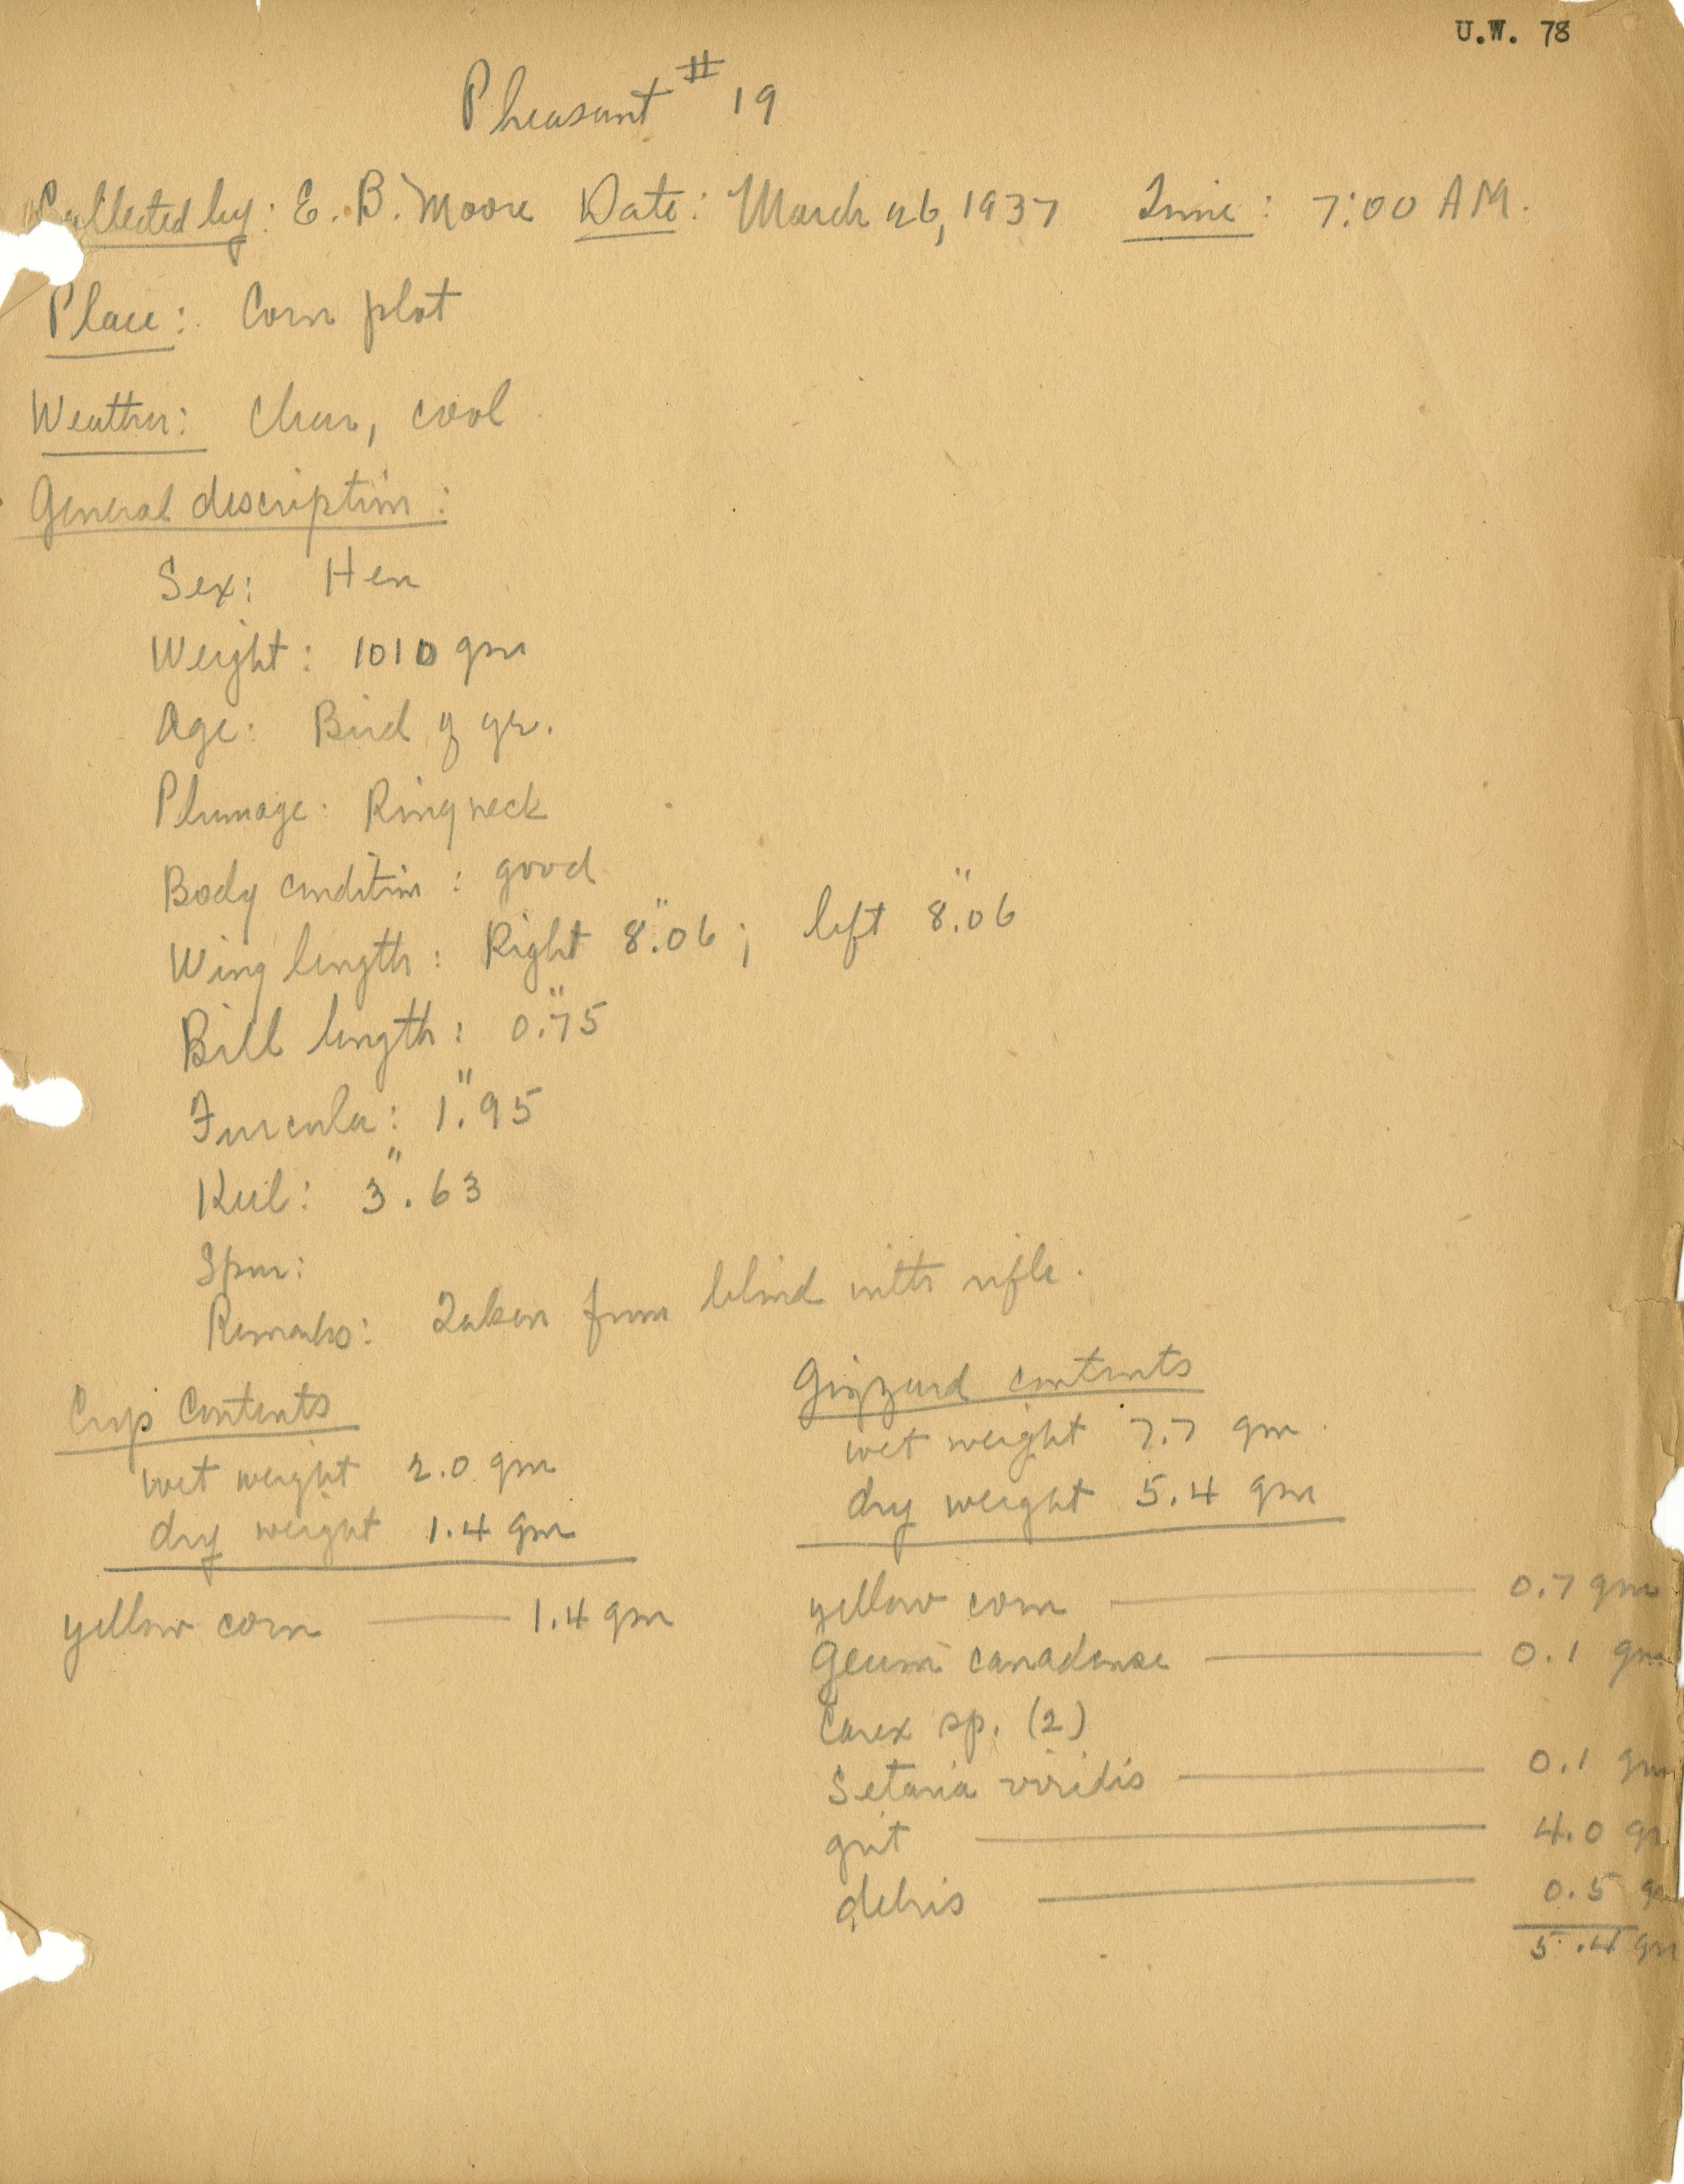 U.W. 78
Pheasant # 19
Collected by: E. B. Moore Date: March 26, 1937 Time: 7:00 AM.
Place: Corn plot
Weather: Clear, cool
General description:
Sex: Hen
Weight: 1010 gm
Age: Bird of yr.
Plumage: Ringneck
Body condition: good
Wing length: Right 8".06; left 8".06
Bill length: 0".75
Furcula: 1".95
Keel: 3".63
Spur:
Remarks: Taken from blind with rifle.
Crop Contents
wet weight 2.0 gm
dry weight 1.4 gm
yellow corn — 1.4 gm
Gizzard contents
wet weight 7.7 gm
dry weight 5.4 gm
yellow corn — 0.7 gm
Geum canadense — 0.1 gm
Carex sp. (2)
Setaria viridis — 0.1 gm
grit — 4.0 gm
debris — 0.5 gm
5.4 gm